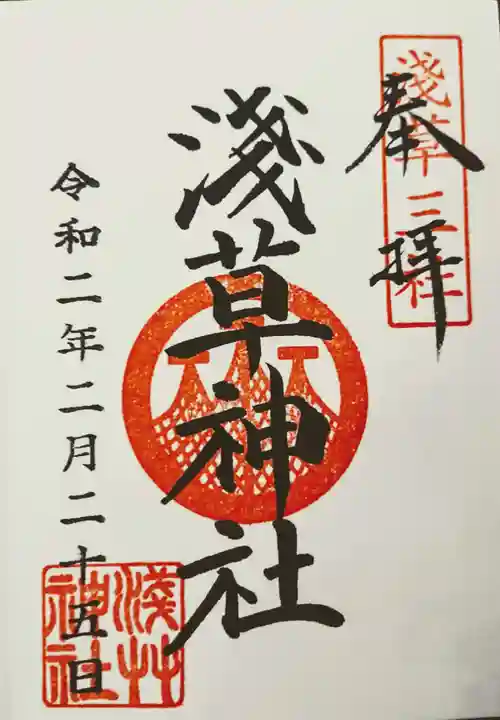 奉拝
淺草三社
淺草神社
令和二年二月二十五日
淺草神社